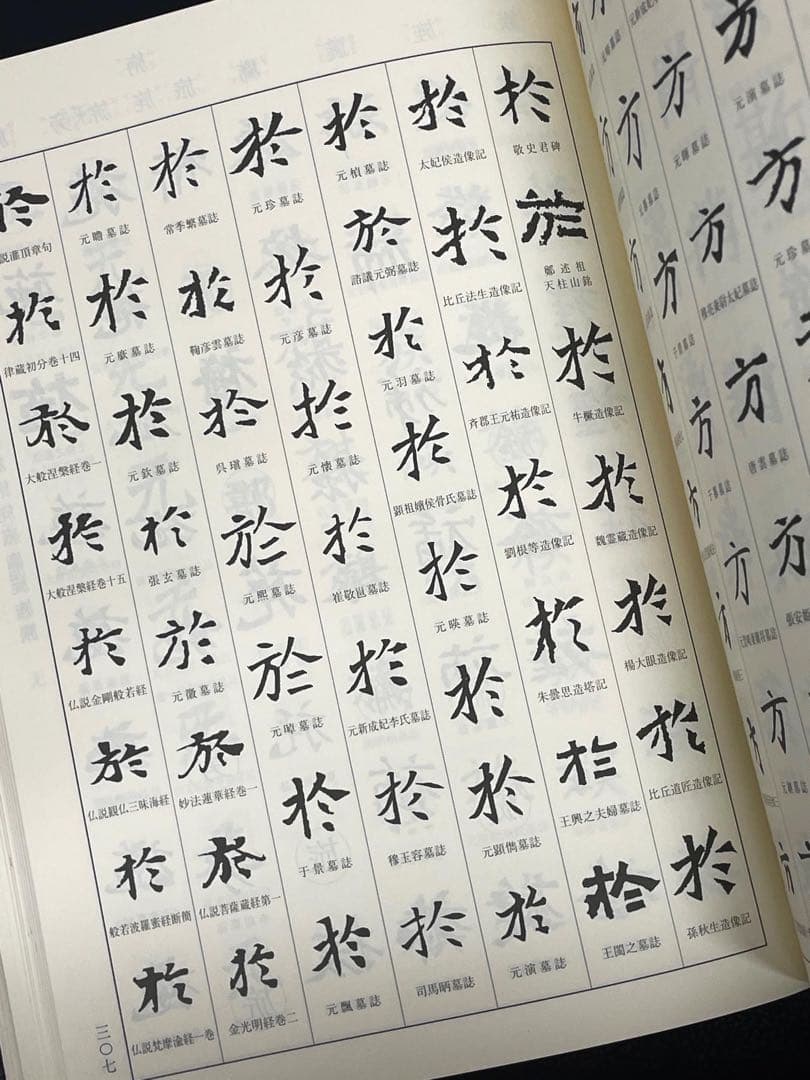 方
元演墓誌
方
元珍墓誌
方
唐雲墓誌
方
方
方
方
於
敬史君碑
於
鄭述祖
天柱山銘
於
牛橛造像記
於
魏霊蔵造像記
於
楊大眼造像記
於
比丘道匠造像記
於
孫秋生造像記
於
太妃侯造像記
於
比丘法生造像記
於
斉郡王元祐造像記
於
劉根等造像記
於
朱曇思造塔記
於
王興之夫婦墓誌
於
王閩之墓誌
於
元楨墓誌
於
諮議元弼墓誌
於
元羽墓誌
於
顕祖嬪侯骨氏墓誌
於
元暎墓誌
於
於
元顕儁墓誌
於
元演墓誌
於
元珍墓誌
於
元彦墓誌
於
元懐墓誌
於
崔敬邕墓誌
於
元新成妃李氏墓誌
於
穆玉容墓誌
於
司馬昞墓誌
於
常季繁墓誌
於
鞠彦雲墓誌
於
呉瑱墓誌
於
元熙墓誌
於
元晫墓誌
於
于景墓誌
於
元飄墓誌
於
元瞻墓誌
於
元廞墓誌
於
元欽墓誌
於
張玄墓誌
於
元徽墓誌
於
妙法蓮華経巻一
於
仏説菩薩蔵経第一
於
金光明経巻二
於
説灌頂章句
於
律蔵初分巻十四
於
大般涅槃経巻一
於
大般涅槃経巻十五
於
仏説金剛般若経
於
仏説観仏三昧海経
於
般若波羅蜜経断簡
於
仏説梵摩渝経一巻
三〇七